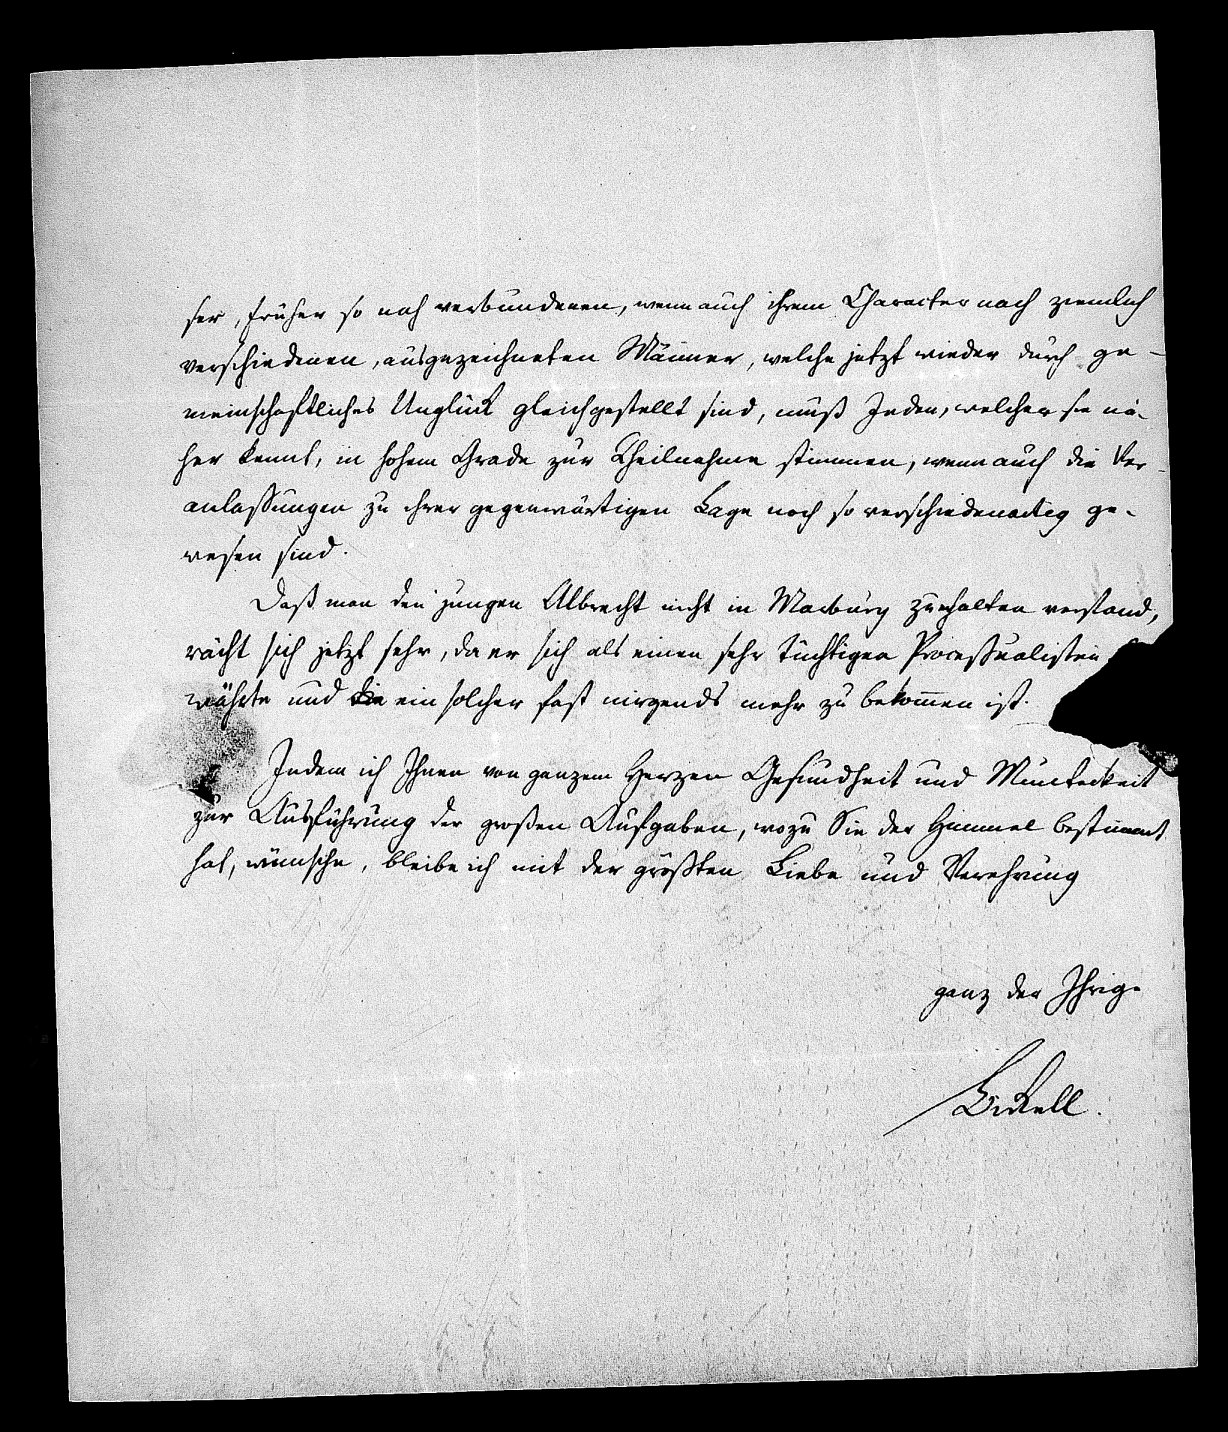 ser, früher so nah verbundenen, wenn auch ihrem Character nach ziemlich
verschiedenen, ausgezeichneten Männer, welche jetzt wieder durch ge-
meinschaftliches Unglück gleichgestellt sind, muß Jeden, welcher sie nä-
her kennt, in hohem Grade zur Theilnahme stimmen, wenn auch die Ver-
anlassungen zu ihrer gegenwärtigen Lage noch so verschiedenartig ge-
wesen sind.
Daß man den jungen Albrecht nicht in Marburg zu halten verstand,
rächt sich jetzt sehr, da er sich als einen sehr tüchtigen Processualisten
währte und ein solcher fast nirgends mehr zu bekom̅en ist.
Indem ich Ihnen von ganzem Herzen Gesundheit und Munterkeit
zur Ausführung der großen Aufgaben, wozu Sie der Himmel bestimmt
hat, wünsche, bleibe ich mit der größten Liebe und Verehrung
ganz der Ihrige
Bickell.